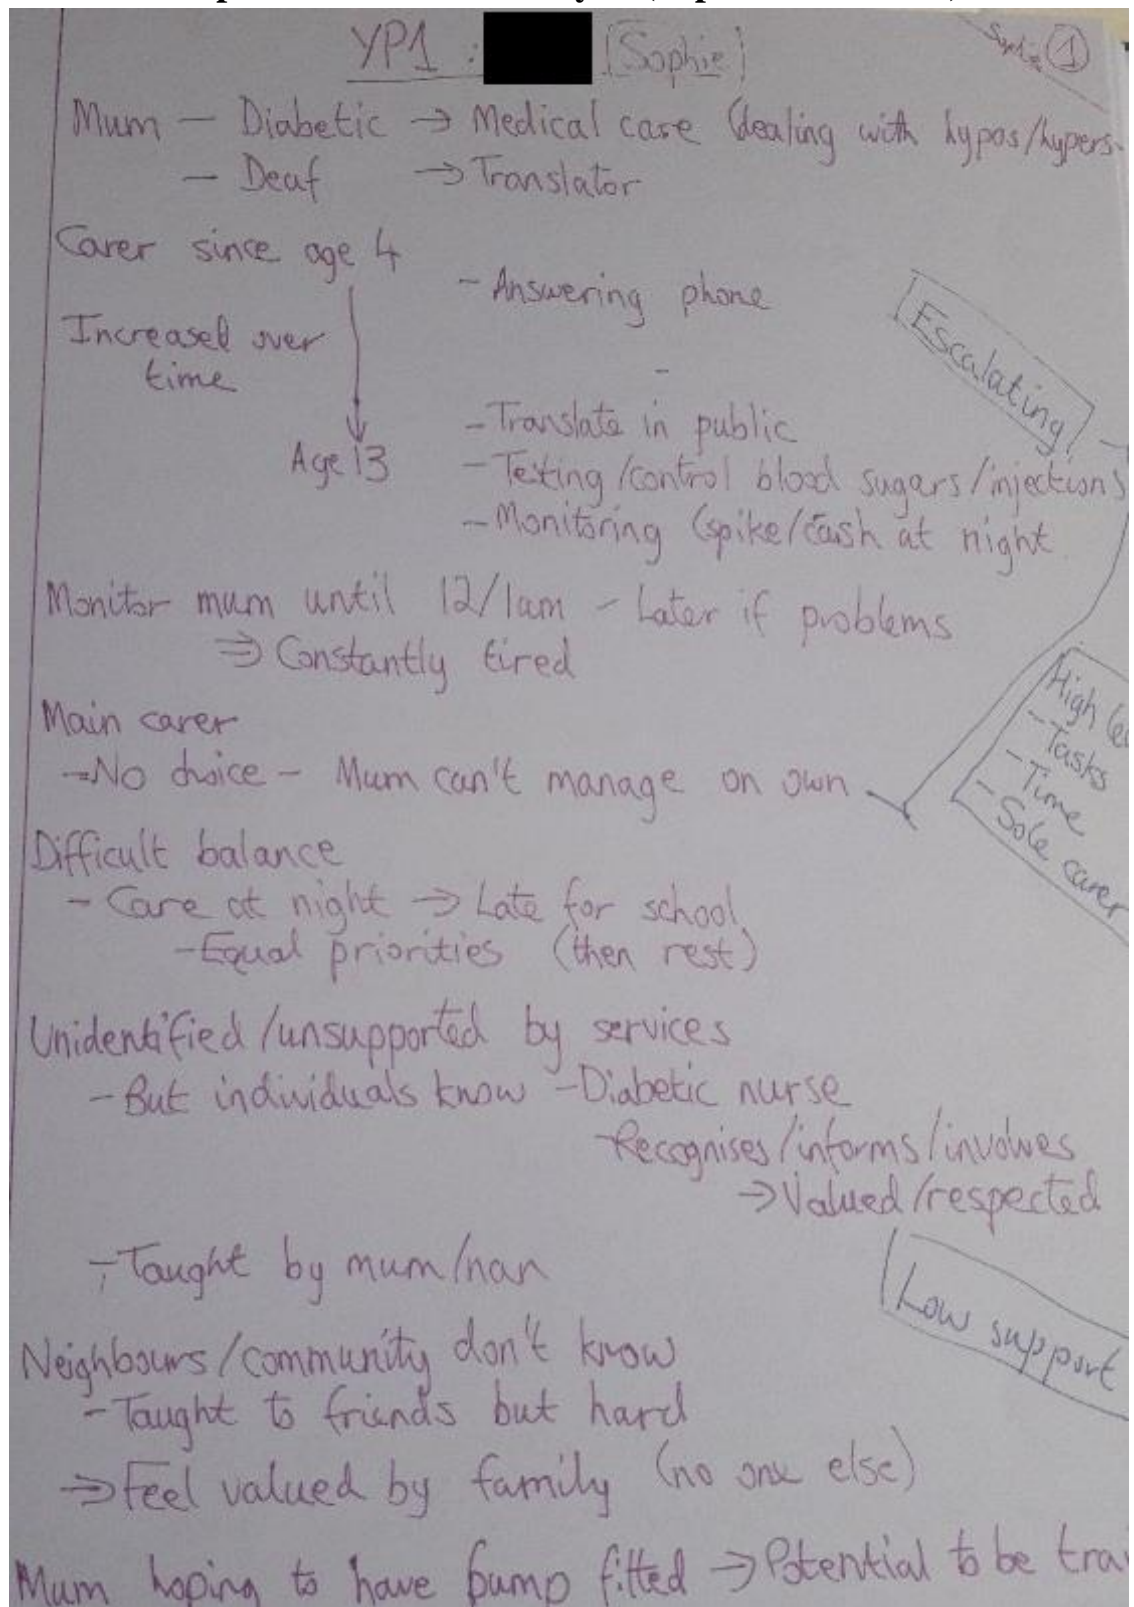 YP1 : [Sophie]
Sophie 1
Mum — Diabetic → Medical care (dealing with hypos/hypers.
— Deaf → Translator
Carer since age 4
- Answering phone
Increased over
time
-
Escalating
- Translate in public
Age 13
- Testing/control blood sugars/injections
- Monitoring (spike/cash at night
Monitor mum until 12/1am - Later if problems
⇒ Constantly tired
High
- Tasks
- Time
- Sole carer
Main carer
→ No choice - Mum can't manage on own
Difficult balance
- Care at night → Late for school
- Equal priorities (then rest)
Unidentified/unsupported by services
- But individuals know - Diabetic nurse
- Recognises/informs/involves
→ Valued/respected
- Taught by mum/nan
Low support
Neighbours/community don't know
- Taught to friends but hard
⇒ Feel valued by family (no one else)
Mum hoping to have pump fitted → Potential to be trai